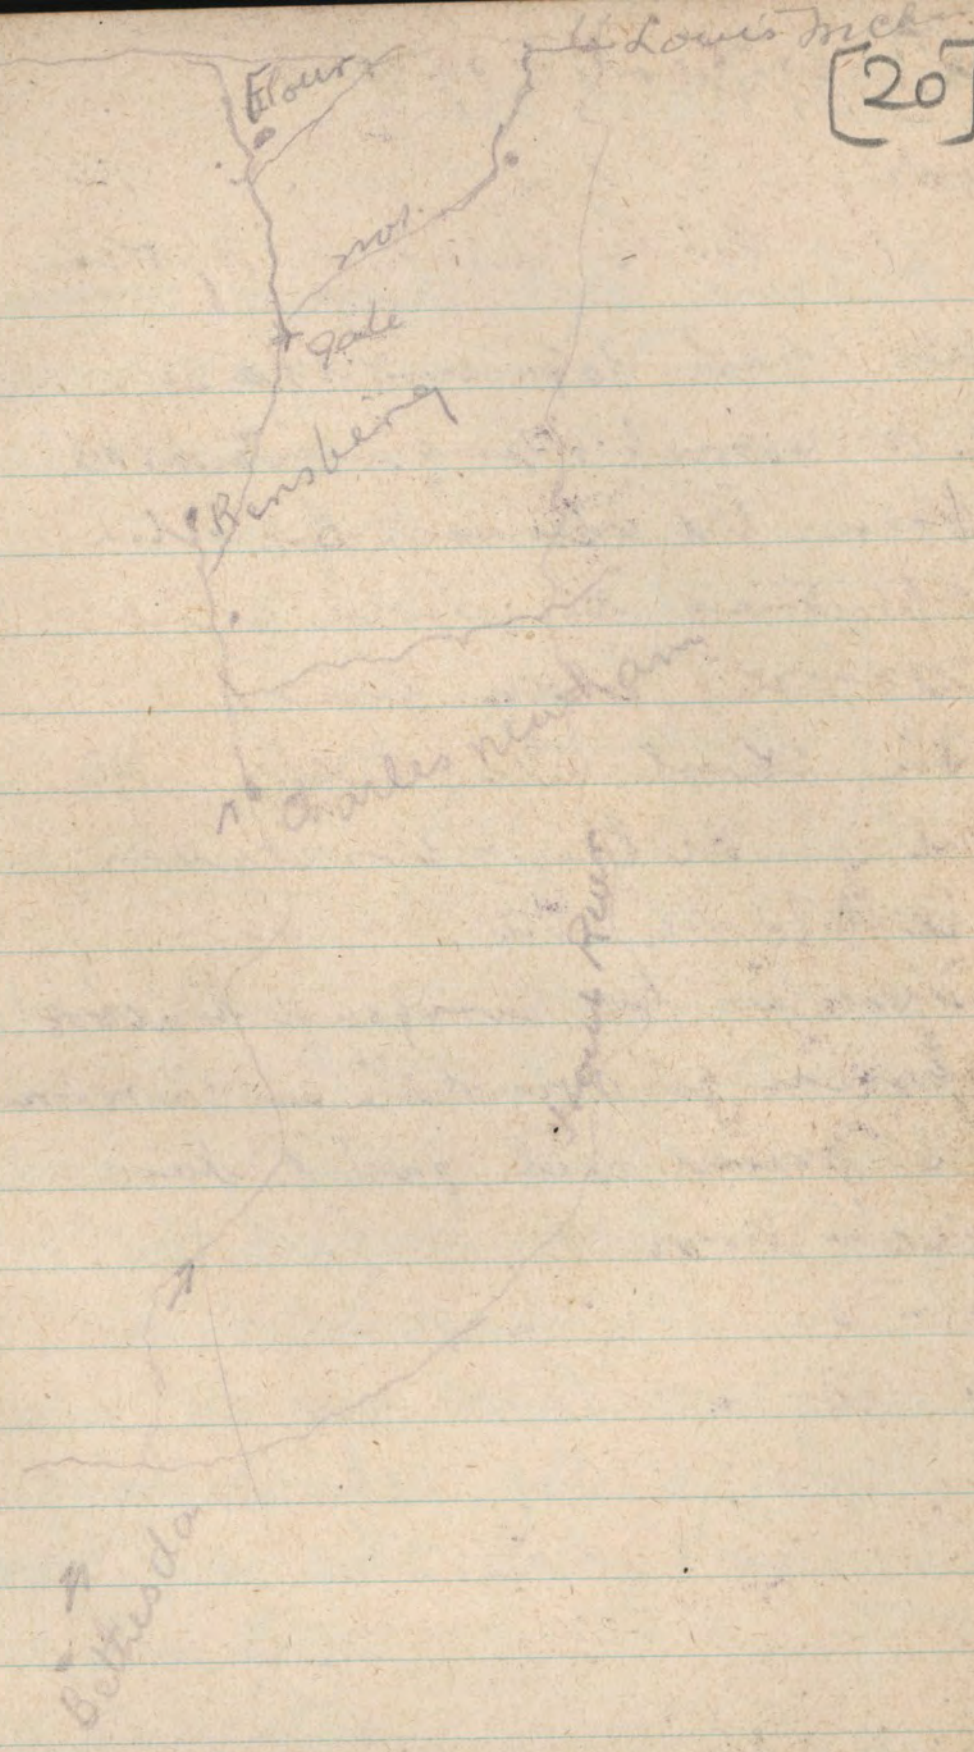 Louis McCh
[20]
Flour
not
gate
Rensberg
Charles Newham
River
Bethesda